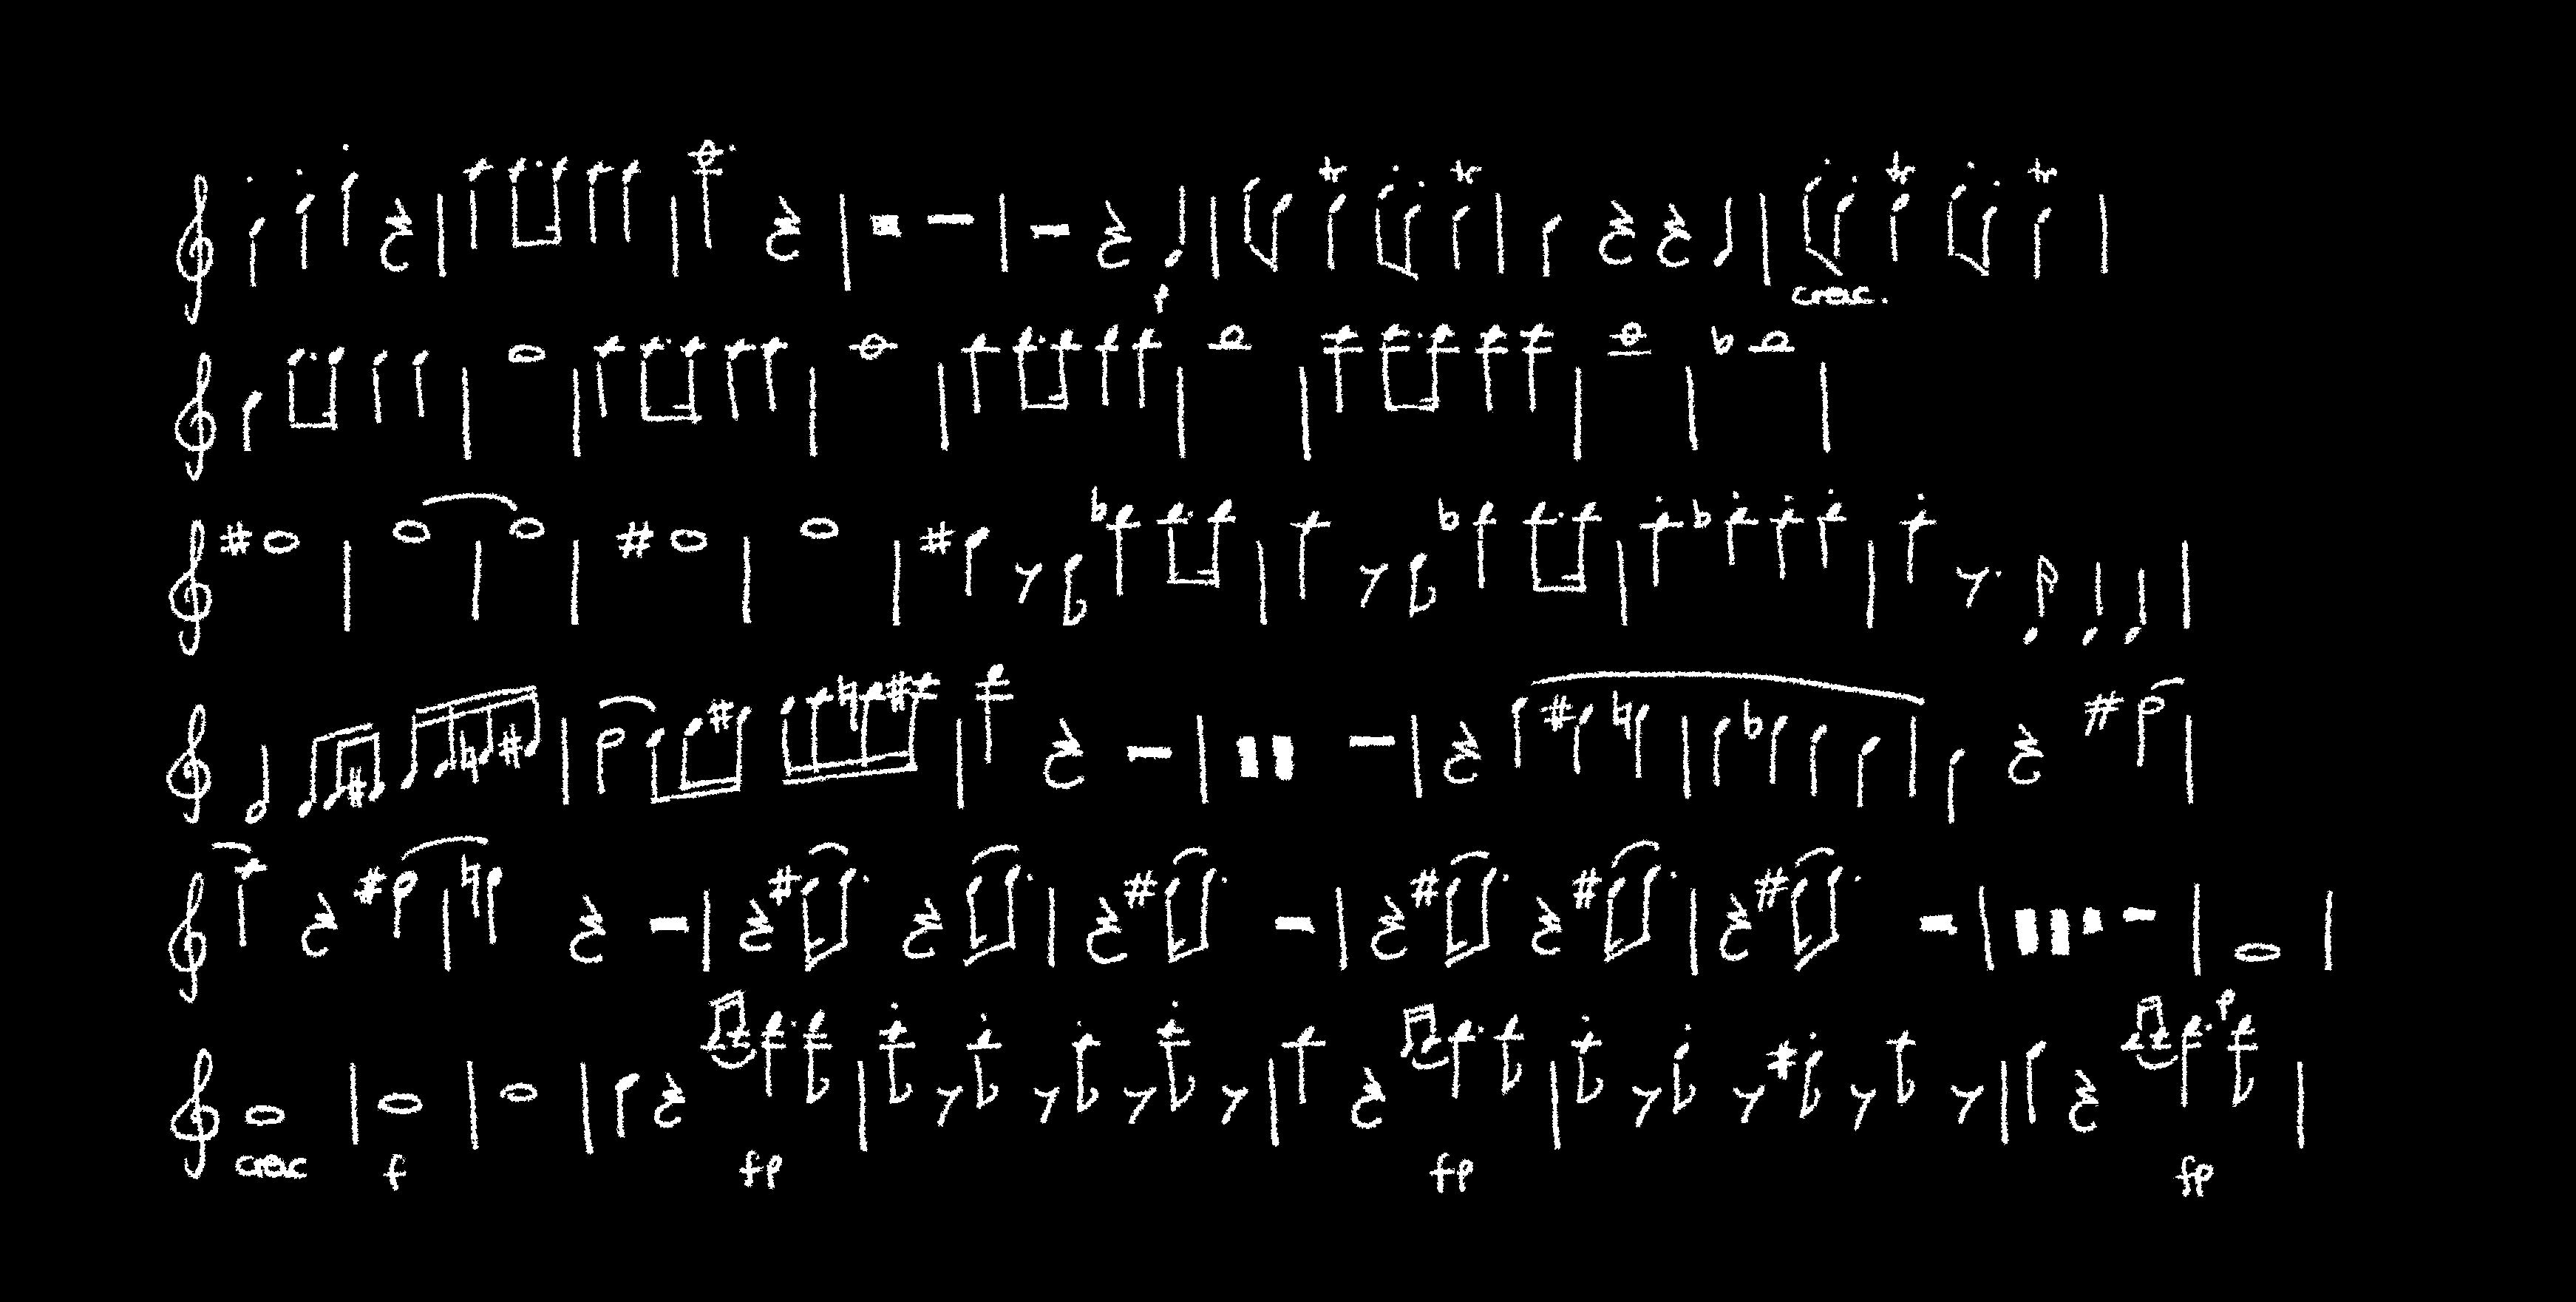 tr tr tr tr
p cresc.
p
cresc f fp fp fp